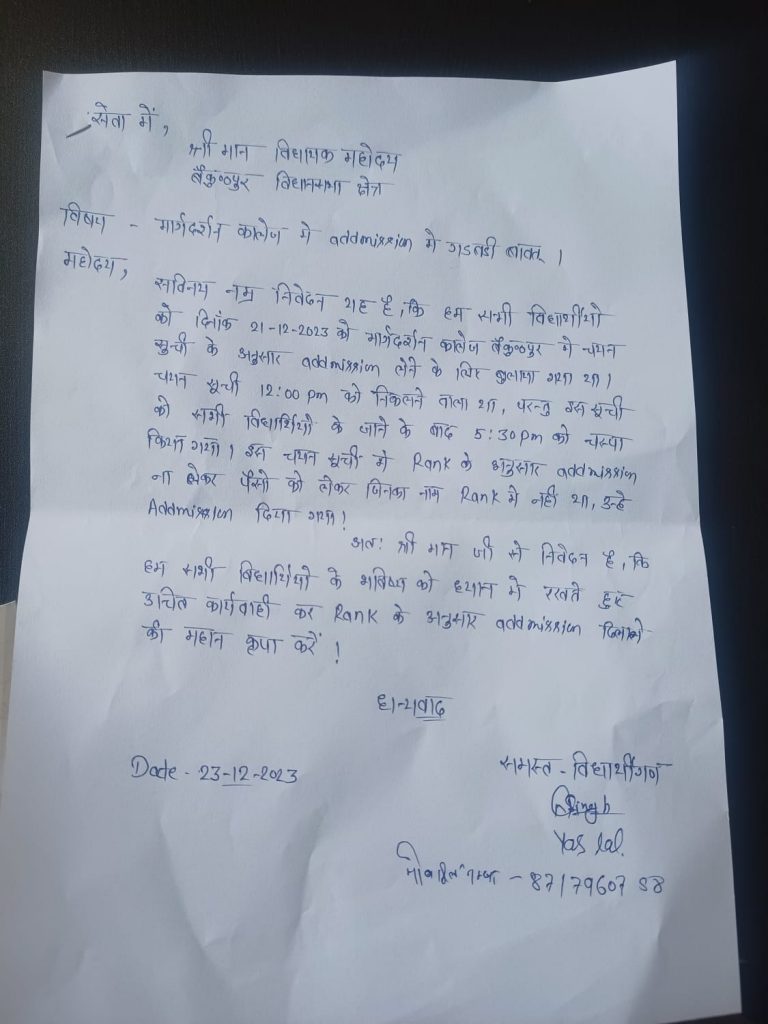 सेवा में,
श्री मान विधायक महोदय
बैंकुण्ठपुर विधानसभा क्षेत्र
विषय - मार्गदर्शन कालेज मे addmission मे गडबडी बाबत् ।
महोदय,
सविनय नम्र निवेदन यह है, कि हम सभी विद्यार्थीयो
को दिनांक 21-12-2023 को मार्गदर्शन कालेज बैंकुण्ठपुर मे चयन
सुची के अनुसार addmission लेने के लिए बुलाया गया था।
चयन सूची 12:00 pm को निकलने वाला था, परन्तु इस सूची
को सभी विद्यार्थियो के जाने के बाद 5:30pm को चस्पा
किया गया। इस चयन सूची मे Rank के अनुसार addmission
ना लेकर पैसो को लेकर जिनका नाम Rank मे नही था, उन्हे
Addmission दिया गया!
अतः श्री मान जी से निवेदन है, कि
हम सभी विद्यार्थियो के भविष्य को ध्यान मे रखते हुए
उचित कार्यवाही कर Rank के अनुसार addmission दिलाने
की महान कृपा करें!
धन्यवाद
Date - 23-12-2023
समस्त - विद्यार्थीगण
Yas lal.
मोबाईल नम्बर - 87179607